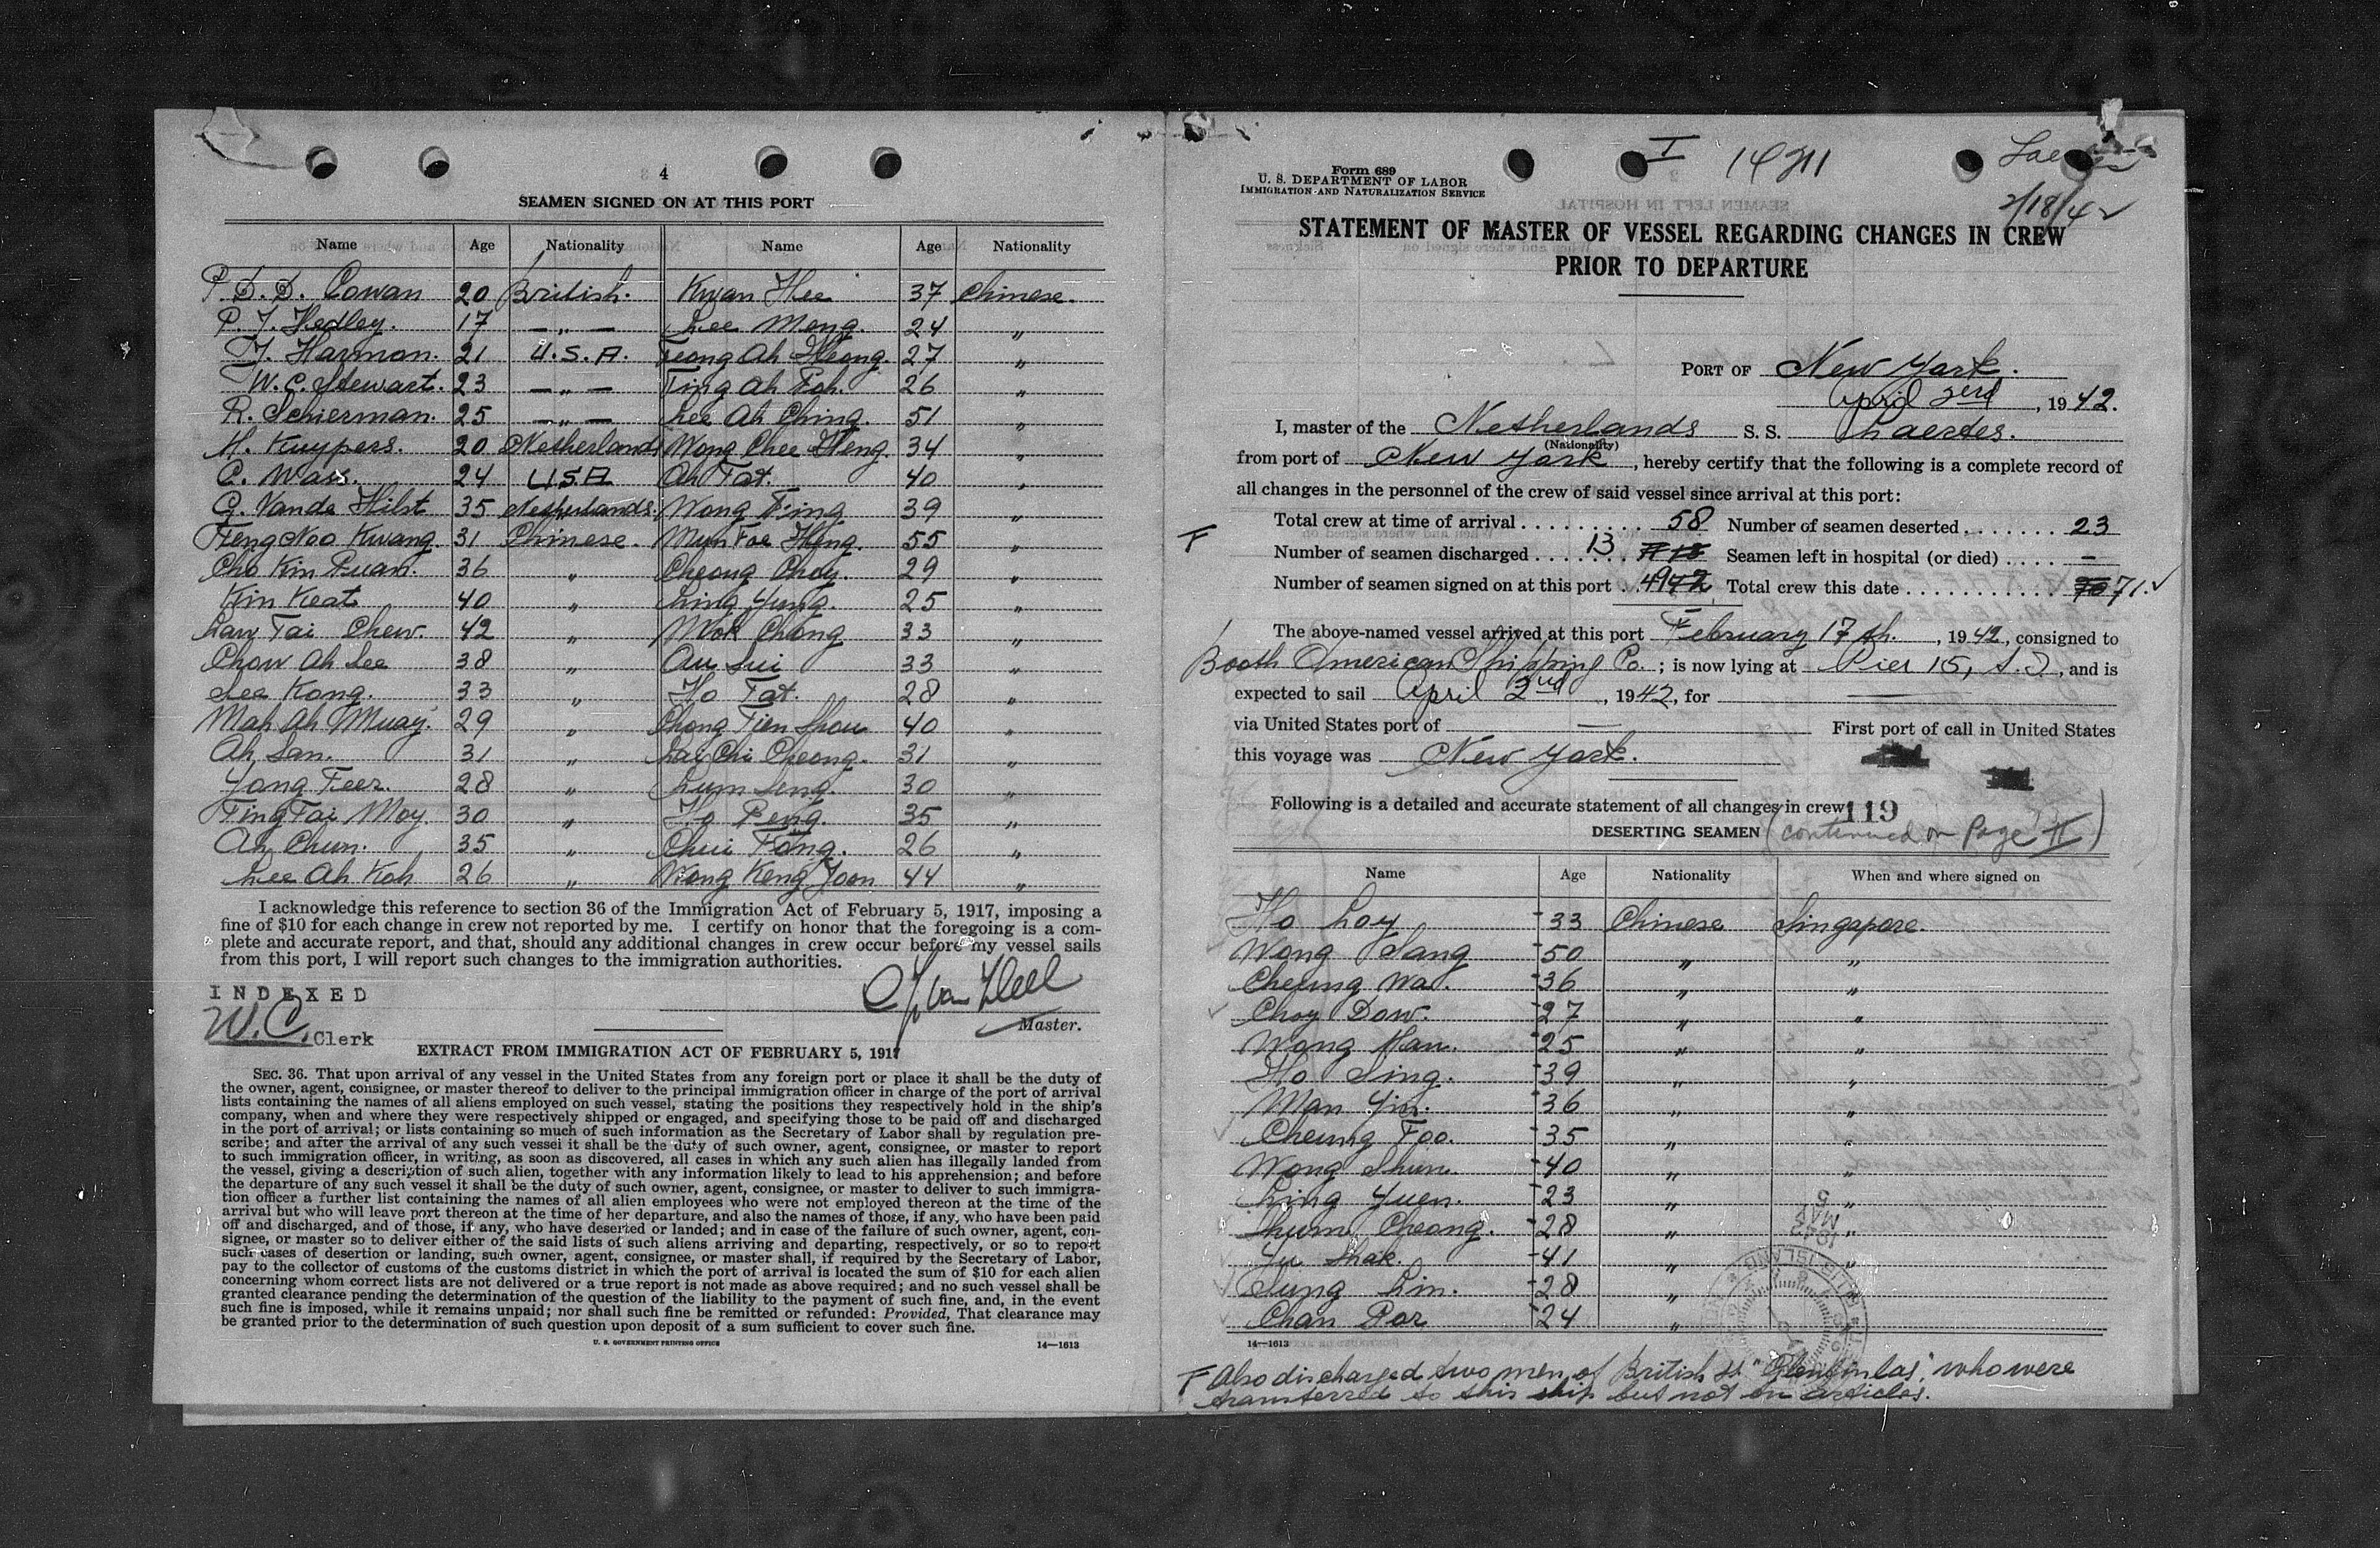 4
SEAMEN SIGNED ON AT THIS PORT
Name Age Nationality Name Age Nationality
P. D. D. Cowan 20 British. Kwan Hee 37 Chinese.
P. J. Hedley. 17 — „ — Lee Meng. 24 „
J. Harmon. 21 U.S.A. Teong Ah Heong. 27 „
W. C. Stewart. 23 — „ — Ting Ah Foh. 26 „
R. Schierman. 25 — „ — Lee Ah Ching. 51 „
H. Kuypers. 20 Netherlands Wong Chee Heng. 34 „
C. Wass. 24 U.S.A Ah Fat. 40 „
G. Vande Hilst 35 Netherlands. Wong Tsing 39 „
Feng Noo Kwang. 31 Chinese. Mun Foe Heng. 55 „
Cho Kim Puan. 36 „ Cheong Choy. 29 „
Kim Keat 40 „ Ling Yung. 25 „
Law Tai Chew. 42 „ Mok Chong 33 „
Chow Ah Lee 38 „ Au Sui 33 „
Lee Kong. 33 „ Ho Fat. 28 „
Mah Ah Muay. 29 „ Chong Tien Shou 40 „
Ah San. 31 „ Lai Chi Cheong. 31 „
Yong Feer. 28 „ Lum Seng. 30 „
Ting Tai Moy. 30 „ Ho Peng. 35 „
Ah Chun. 35 „ Chui Fong. 26 „
Lee Ah Koh 26 „ Wong Keng Joon 44 „
I acknowledge this reference to section 36 of the Immigration Act of February 5, 1917, imposing a
fine of $10 for each change in crew not reported by me. I certify on honor that the foregoing is a com-
plete and accurate report, and that, should any additional changes in crew occur before my vessel sails
from this port, I will report such changes to the immigration authorities.
INDEXED
W. C. Clerk
Master.
EXTRACT FROM IMMIGRATION ACT OF FEBRUARY 5, 1917
SEC. 36. That upon arrival of any vessel in the United States from any foreign port or place it shall be the duty of
the owner, agent, consignee, or master thereof to deliver to the principal immigration officer in charge of the port of arrival
lists containing the names of all aliens employed on such vessel, stating the positions they respectively hold in the ship's
company, when and where they were respectively shipped or engaged, and specifying those to be paid off and discharged
in the port of arrival; or lists containing so much of such information as the Secretary of Labor shall by regulation pre-
scribe; and after the arrival of any such vessel it shall be the duty of such owner, agent, consignee, or master to report
to such immigration officer, in writing, as soon as discovered, all cases in which any such alien has illegally landed from
the vessel, giving a description of such alien, together with any information likely to lead to his apprehension; and before
the departure of any such vessel it shall be the duty of such owner, agent, consignee, or master to deliver to such immigra-
tion officer a further list containing the names of all alien employees who were not employed thereon at the time of the
arrival but who will leave port thereon at the time of her departure, and also the names of those, if any, who have been paid
off and discharged, and of those, if any, who have deserted or landed; and in case of the failure of such owner, agent, con-
signee, or master so to deliver either of the said lists of such aliens arriving and departing, respectively, or so to report
such cases of desertion or landing, such owner, agent, consignee, or master shall, if required by the Secretary of Labor,
pay to the collector of customs of the customs district in which the port of arrival is located the sum of $10 for each alien
concerning whom correct lists are not delivered or a true report is not made as above required; and no such vessel shall be
granted clearance pending the determination of the question of the liability to the payment of such fine, and, in the event
such fine is imposed, while it remains unpaid; nor shall such fine be remitted or refunded: Provided, That clearance may
be granted prior to the determination of such question upon deposit of a sum sufficient to cover such fine.
U. S. GOVERNMENT PRINTING OFFICE 14—1613
Form 689
U. S. DEPARTMENT OF LABOR
IMMIGRATION AND NATURALIZATION SERVICE
I
2/18/42
STATEMENT OF MASTER OF VESSEL REGARDING CHANGES IN CREW
PRIOR TO DEPARTURE
PORT OF New York.
April 2erd, 1942.
I, master of the Netherlands S. S. Laertes.
(Nationality)
from port of New York, hereby certify that the following is a complete record of
all changes in the personnel of the crew of said vessel since arrival at this port:
Total crew at time of arrival 58 Number of seamen deserted 23
F Number of seamen discharged 13 Seamen left in hospital (or died) —
Number of seamen signed on at this port 49 Total crew this date 71.
The above-named vessel arrived at this port February 17th., 1942, consigned to
Booth American Shipping Co.; is now lying at Pier 15, S.I., and is
expected to sail April 2nd, 1942, for —
via United States port of — First port of call in United States
this voyage was New York.
Following is a detailed and accurate statement of all changes in crew
119
DESERTING SEAMEN (continued on Page II)
Name Age Nationality When and where signed on
Ho Loy 33 Chinese Singapore.
Wong Sang 50 „ „
Cheung Wa. 36 „ „
Choy Dow. 27 „ „
Wong Han. 25 „ „
Ho Sing. 39 „ „
Man Yin. 36 „ „
Cheung Foo. 35 „ „
Wong Shun. 40 „ „
Ling Yuen. 23 „ „
Lum Cheong. 28 „ „
Yu Shak. 41 „ „
Sung Lin. 28 „
Chan Por 24 „
14—1613
F Also discharged two men of British SS "Glenfinlas", who were
transferred to this ship but not on articles.